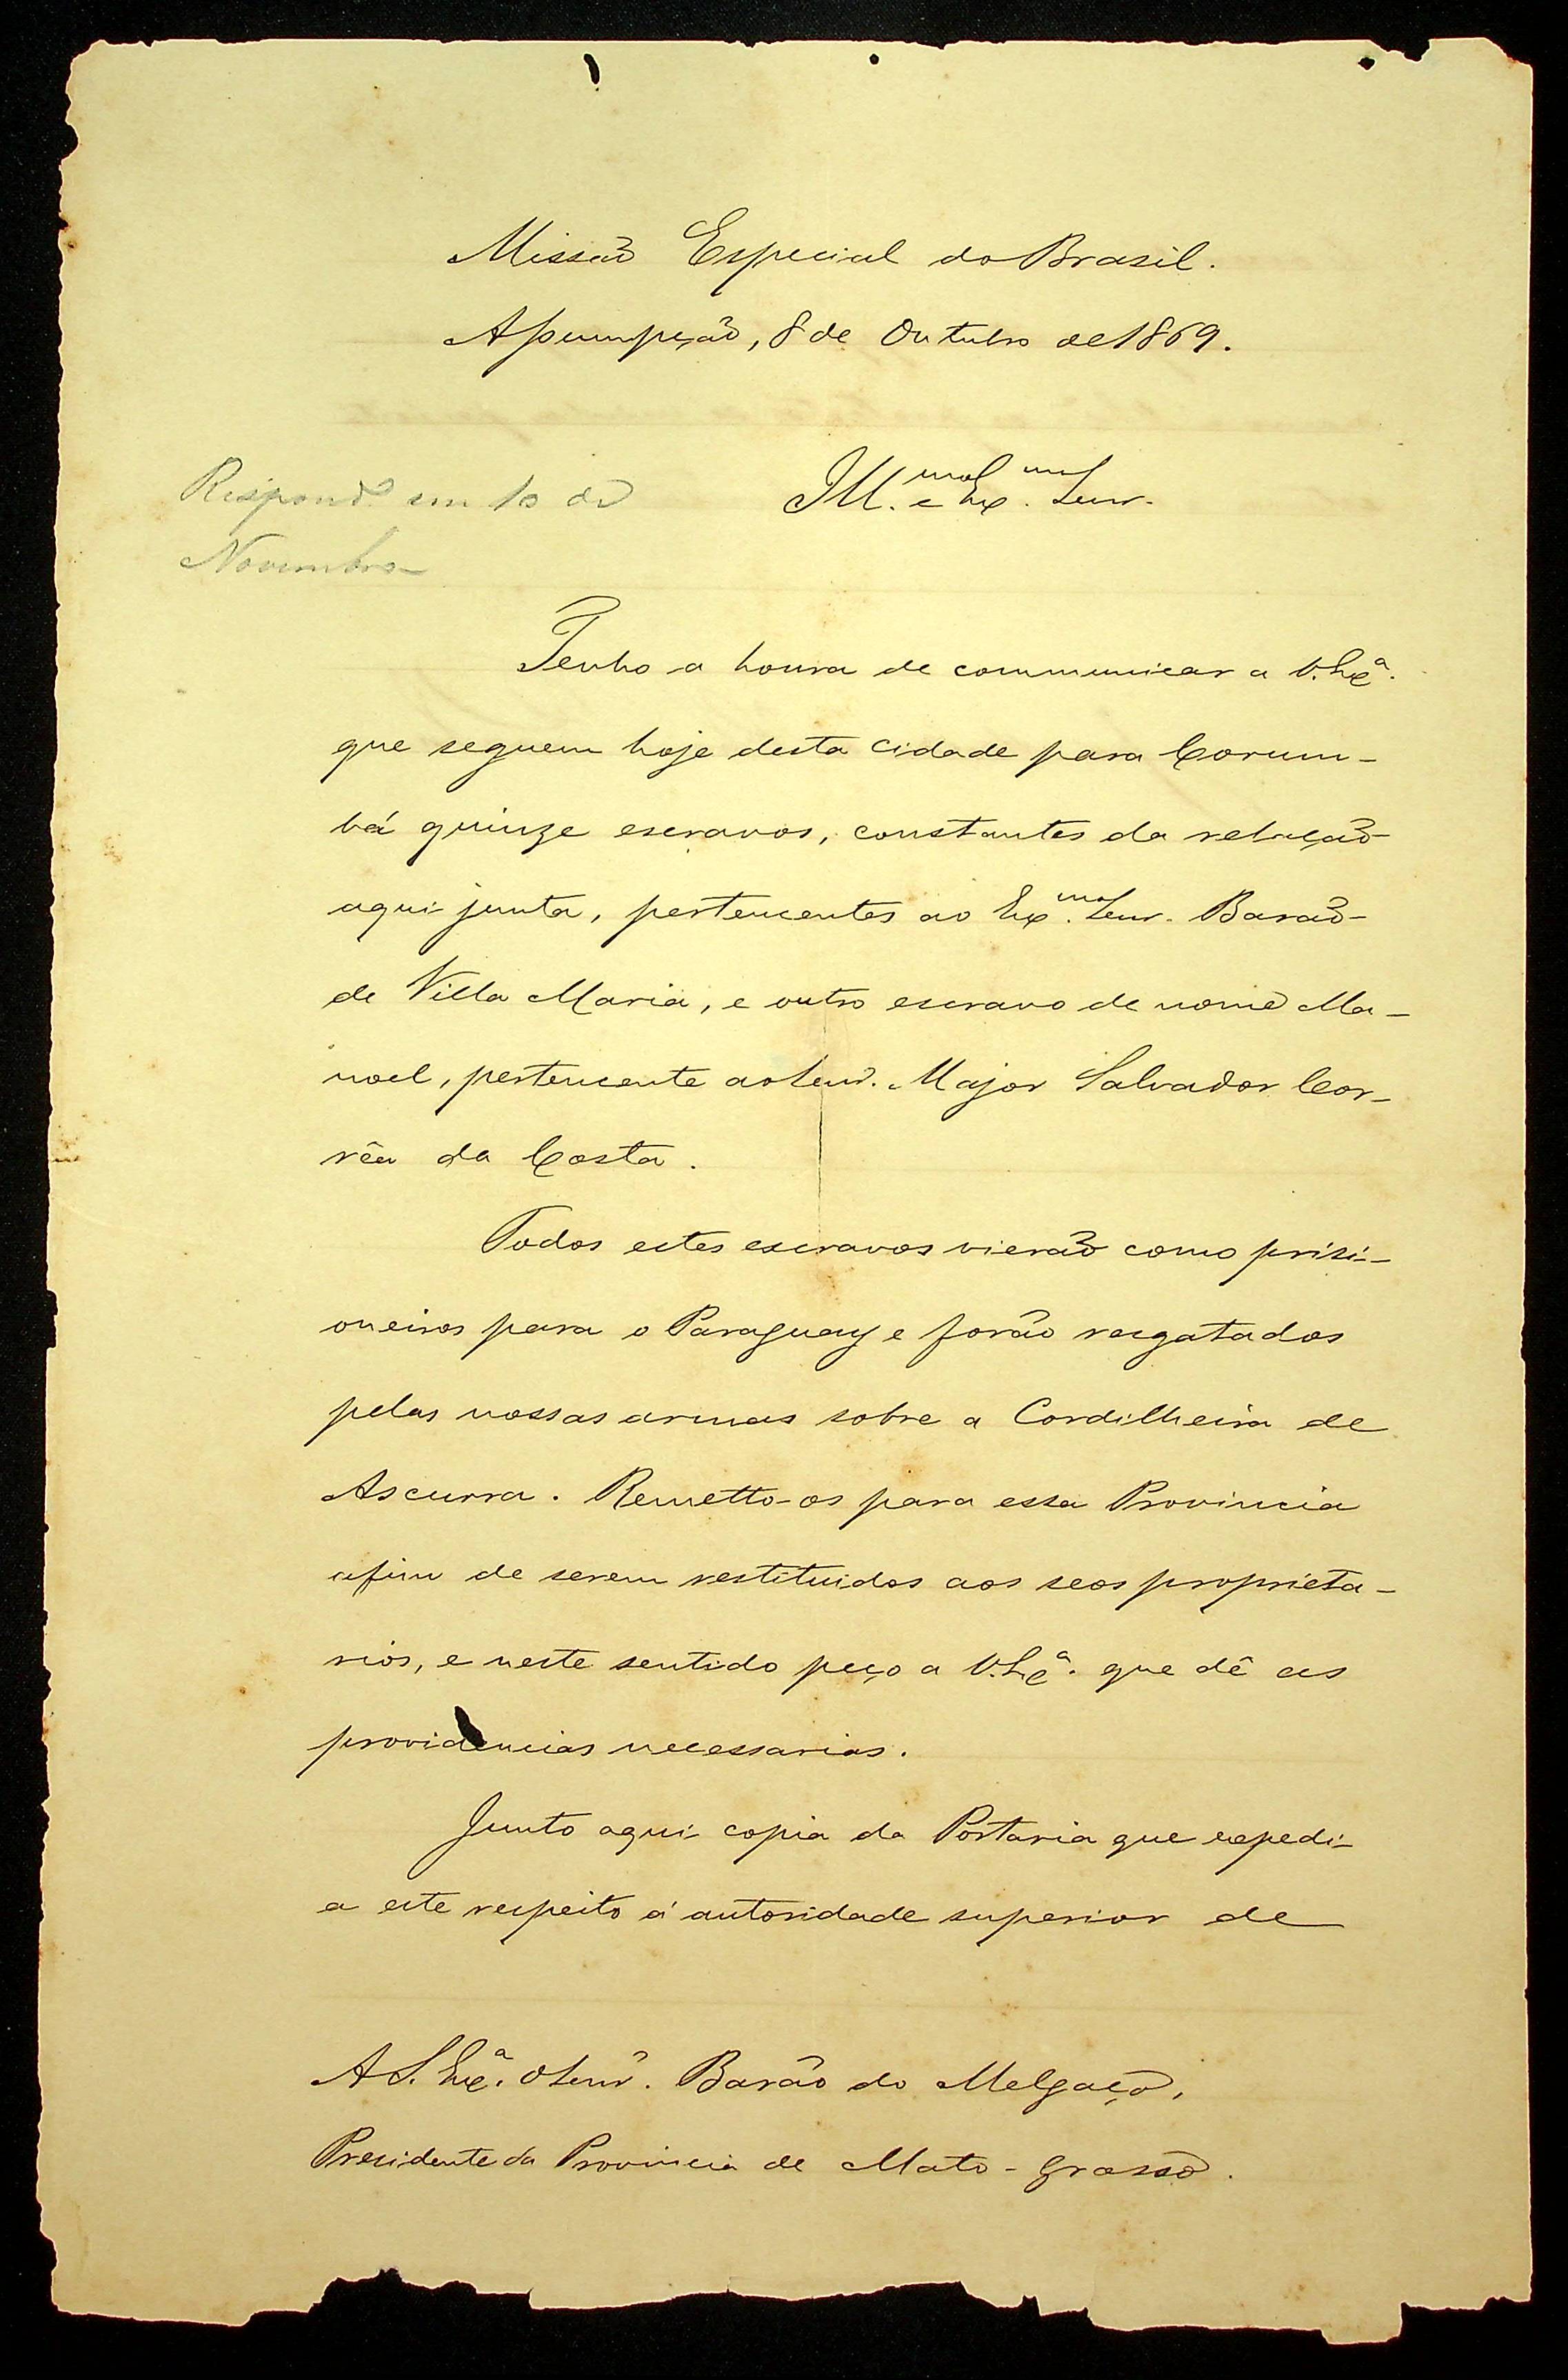 Missão Especial do Brasil.
Assumpção, 8 de Outubro de 1869.
Respond em 10 de
Novembro
Ill.mo e Ex.mo Senr.
Tenho a honra de communicar a V. Exª.
que seguem hoje desta cidade para Corum-
bá quinze escravos, constantes da relação
aqui junta, pertencentes ao Ex.mo Senr. Barão
de Villa Maria, e outro escravo de nome Ma-
noel, pertencente ao Senr. Major Salvador Cor-
rêa da Costa.
Todos estes escravos vierão como prisi-
oneiros para o Paraguay e forão resgatados
pelas nossas armas sobre a Cordilheira de
Ascurra. Remetto-os para essa Provincia
afim de serem restituidos aos seos proprieta-
rios, e neste sentido peço a V. Exª. que dê as
providencias necessarias.
Junto aqui copia da Portaria que expedi
a este respeito á autoridade superior de
A S. Exª. o Senr. Barão do Melgaço,
Presidente da Provincia de Mato-grosso.